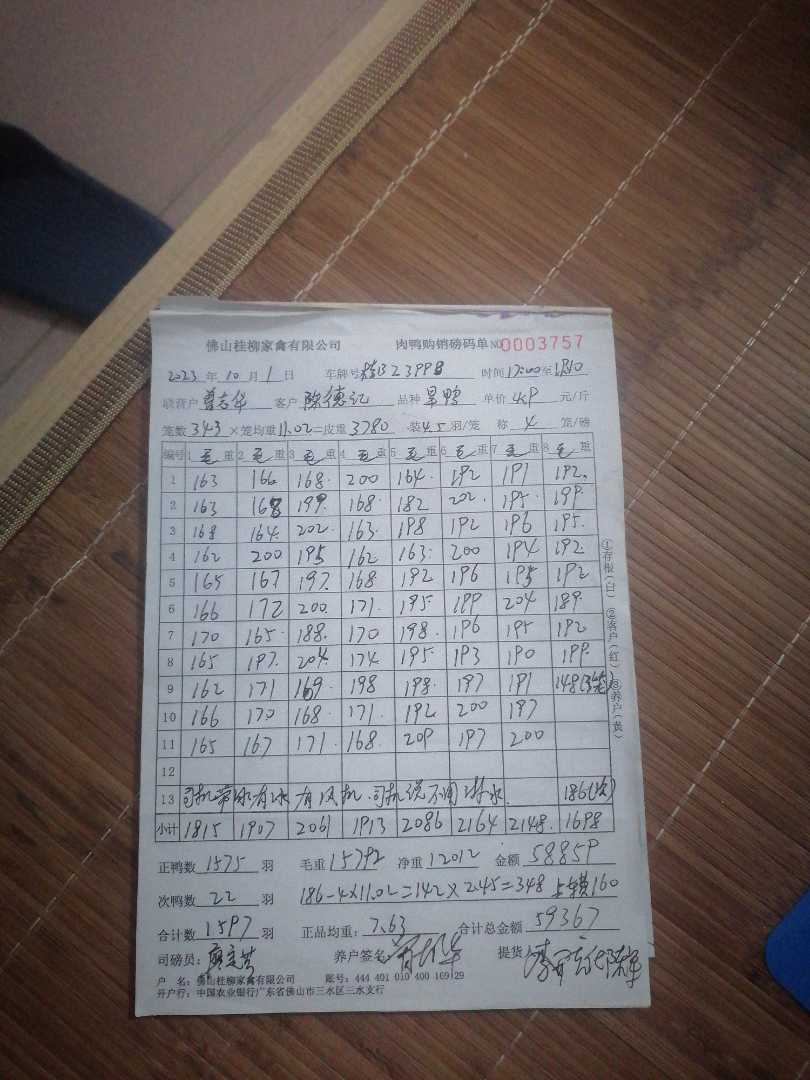 佛山桂柳家禽有限公司 肉鸭购销磅码单 NO 0003757
2023 年 10 月 1 日 车牌号 时间 17:00 至
联营户 曾志华 客户 陈德记 品种 旱鸭 单价 4.9 元/斤
笼数 343 ×笼均重 11.02 =皮重 3780 装 4.5 羽/笼 称 4 笼/磅
编号 1 毛 重 2 毛 重 3 毛 重 4 毛 重 5 毛 重 6 毛 重 7 毛 重 8 毛 重
1 163 166 168 200 164 192 191 192
2 163 168 199 168 182 202 195 199
3 168 164 202 163 198 192 196 195
4 162 200 195 162 163 200 194 192
5 165 167 197 168 192 196 195 192
6 166 172 200 171 195 199 204 189
7 170 165 188 170 198 196 195 192
8 165 197 204 174 195 193 190 199
9 162 171 169 198 198 197 191 148(3笼)
10 166 170 168 171 192 200 197
11 165 167 171 168 209 197 200
12
13 司机带水有冰有风机.司机说不用淋水. 186(次)
小计 1815 1907 2061 1913 2086 2164 2148 1698
正鸭数 1575 羽 毛重 15792 净重 12012 金额 58859
次鸭数 22 羽 186-4×11.02=142×2.45=348 上车费160
合计数 1597 羽 正品均重: 7.63 合计总金额 59367
司磅员: 养户签名 提货人
户 名: 佛山桂柳家禽有限公司 账号: 444 401 010 400 169 29
开户行: 中国农业银行广东省佛山市三水区三水支行
①存根(白) ②客户(红) ③养户(黄)